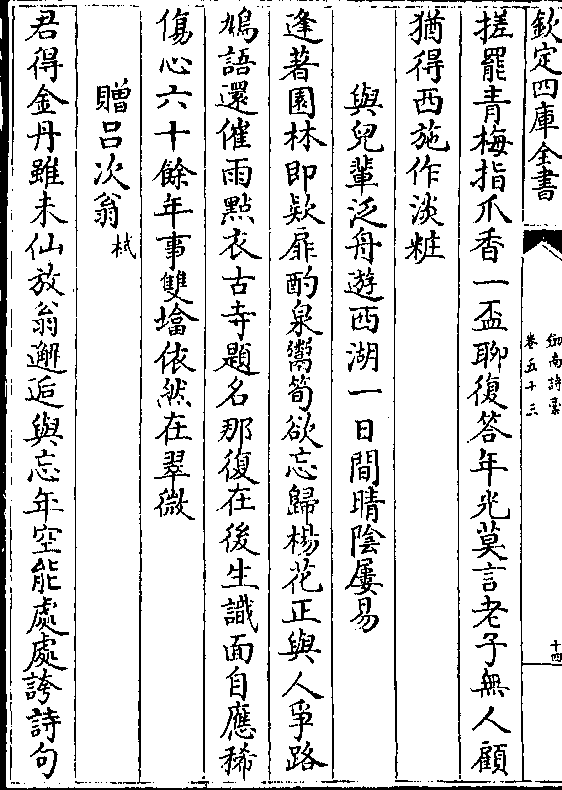 欽定四庫全書
劒南詩槀
卷五十三
十四
搓罷青梅指爪香一盃聊復答年光莫言老子無人顧
猶得西施作淡粧
與兒輩泛舟遊西湖一日間晴陰屢易
逢著園林即欵扉酌泉鬻筍欲忘歸楊花正與人爭路
鳩語還催雨點衣古寺題名那復在後生識面自應稀
傷心六十餘年事雙塔依然在翠微
贈呂次翁栻
君得金丹雖未仙放翁邂逅與忘年空能處處誇詩句